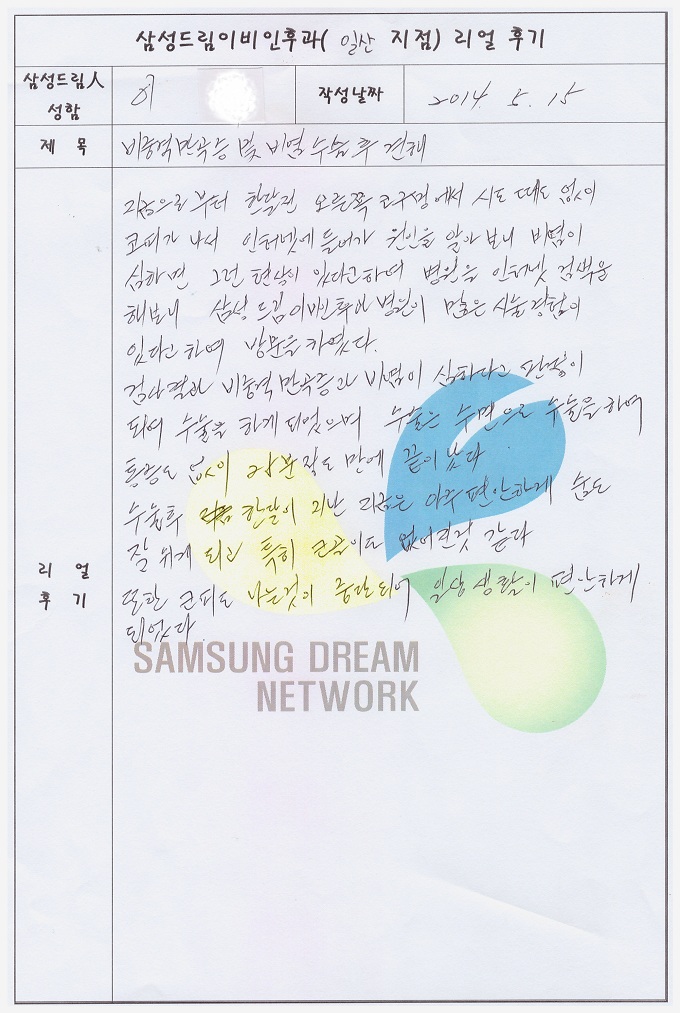 삼성드림이비인후과( 일산 지점) 리얼 후기
삼성드림人
성함
이
작성날짜
2014. 5. 15
제 목
비중격만곡증 및 비염 수술 후 견해
지금으로부터 한달전 오른쪽 코구멍에서 시도 때도 없이
코피가 나서 인터넷에 들어가 원인을 알아보니 비염이
심하면 그런 현상이 있다고하여 병원을 인터넷 검색을
해보니 삼성드림이비인후과병원이 많은 시술경험이
있다고 하여 방문을 하였다.
검사결과 비중격만곡증과 비염이 심하다고 판정이
되어 수술을 하게 되었으며 수술은 수면으로 수술을 하여
통증도 없이 25분정도 만에 끝이 났다
수술후 한달이 지난 지금은 아주 편안하게 숨도
잘 쉬게 되고 특히 코골이도 없어진것 같다
또한 코피도 나는것이 중단되어 일상생활이 편안하게
되었다.
리 얼
후 기
SAMSUNG DREAM
NETWORK